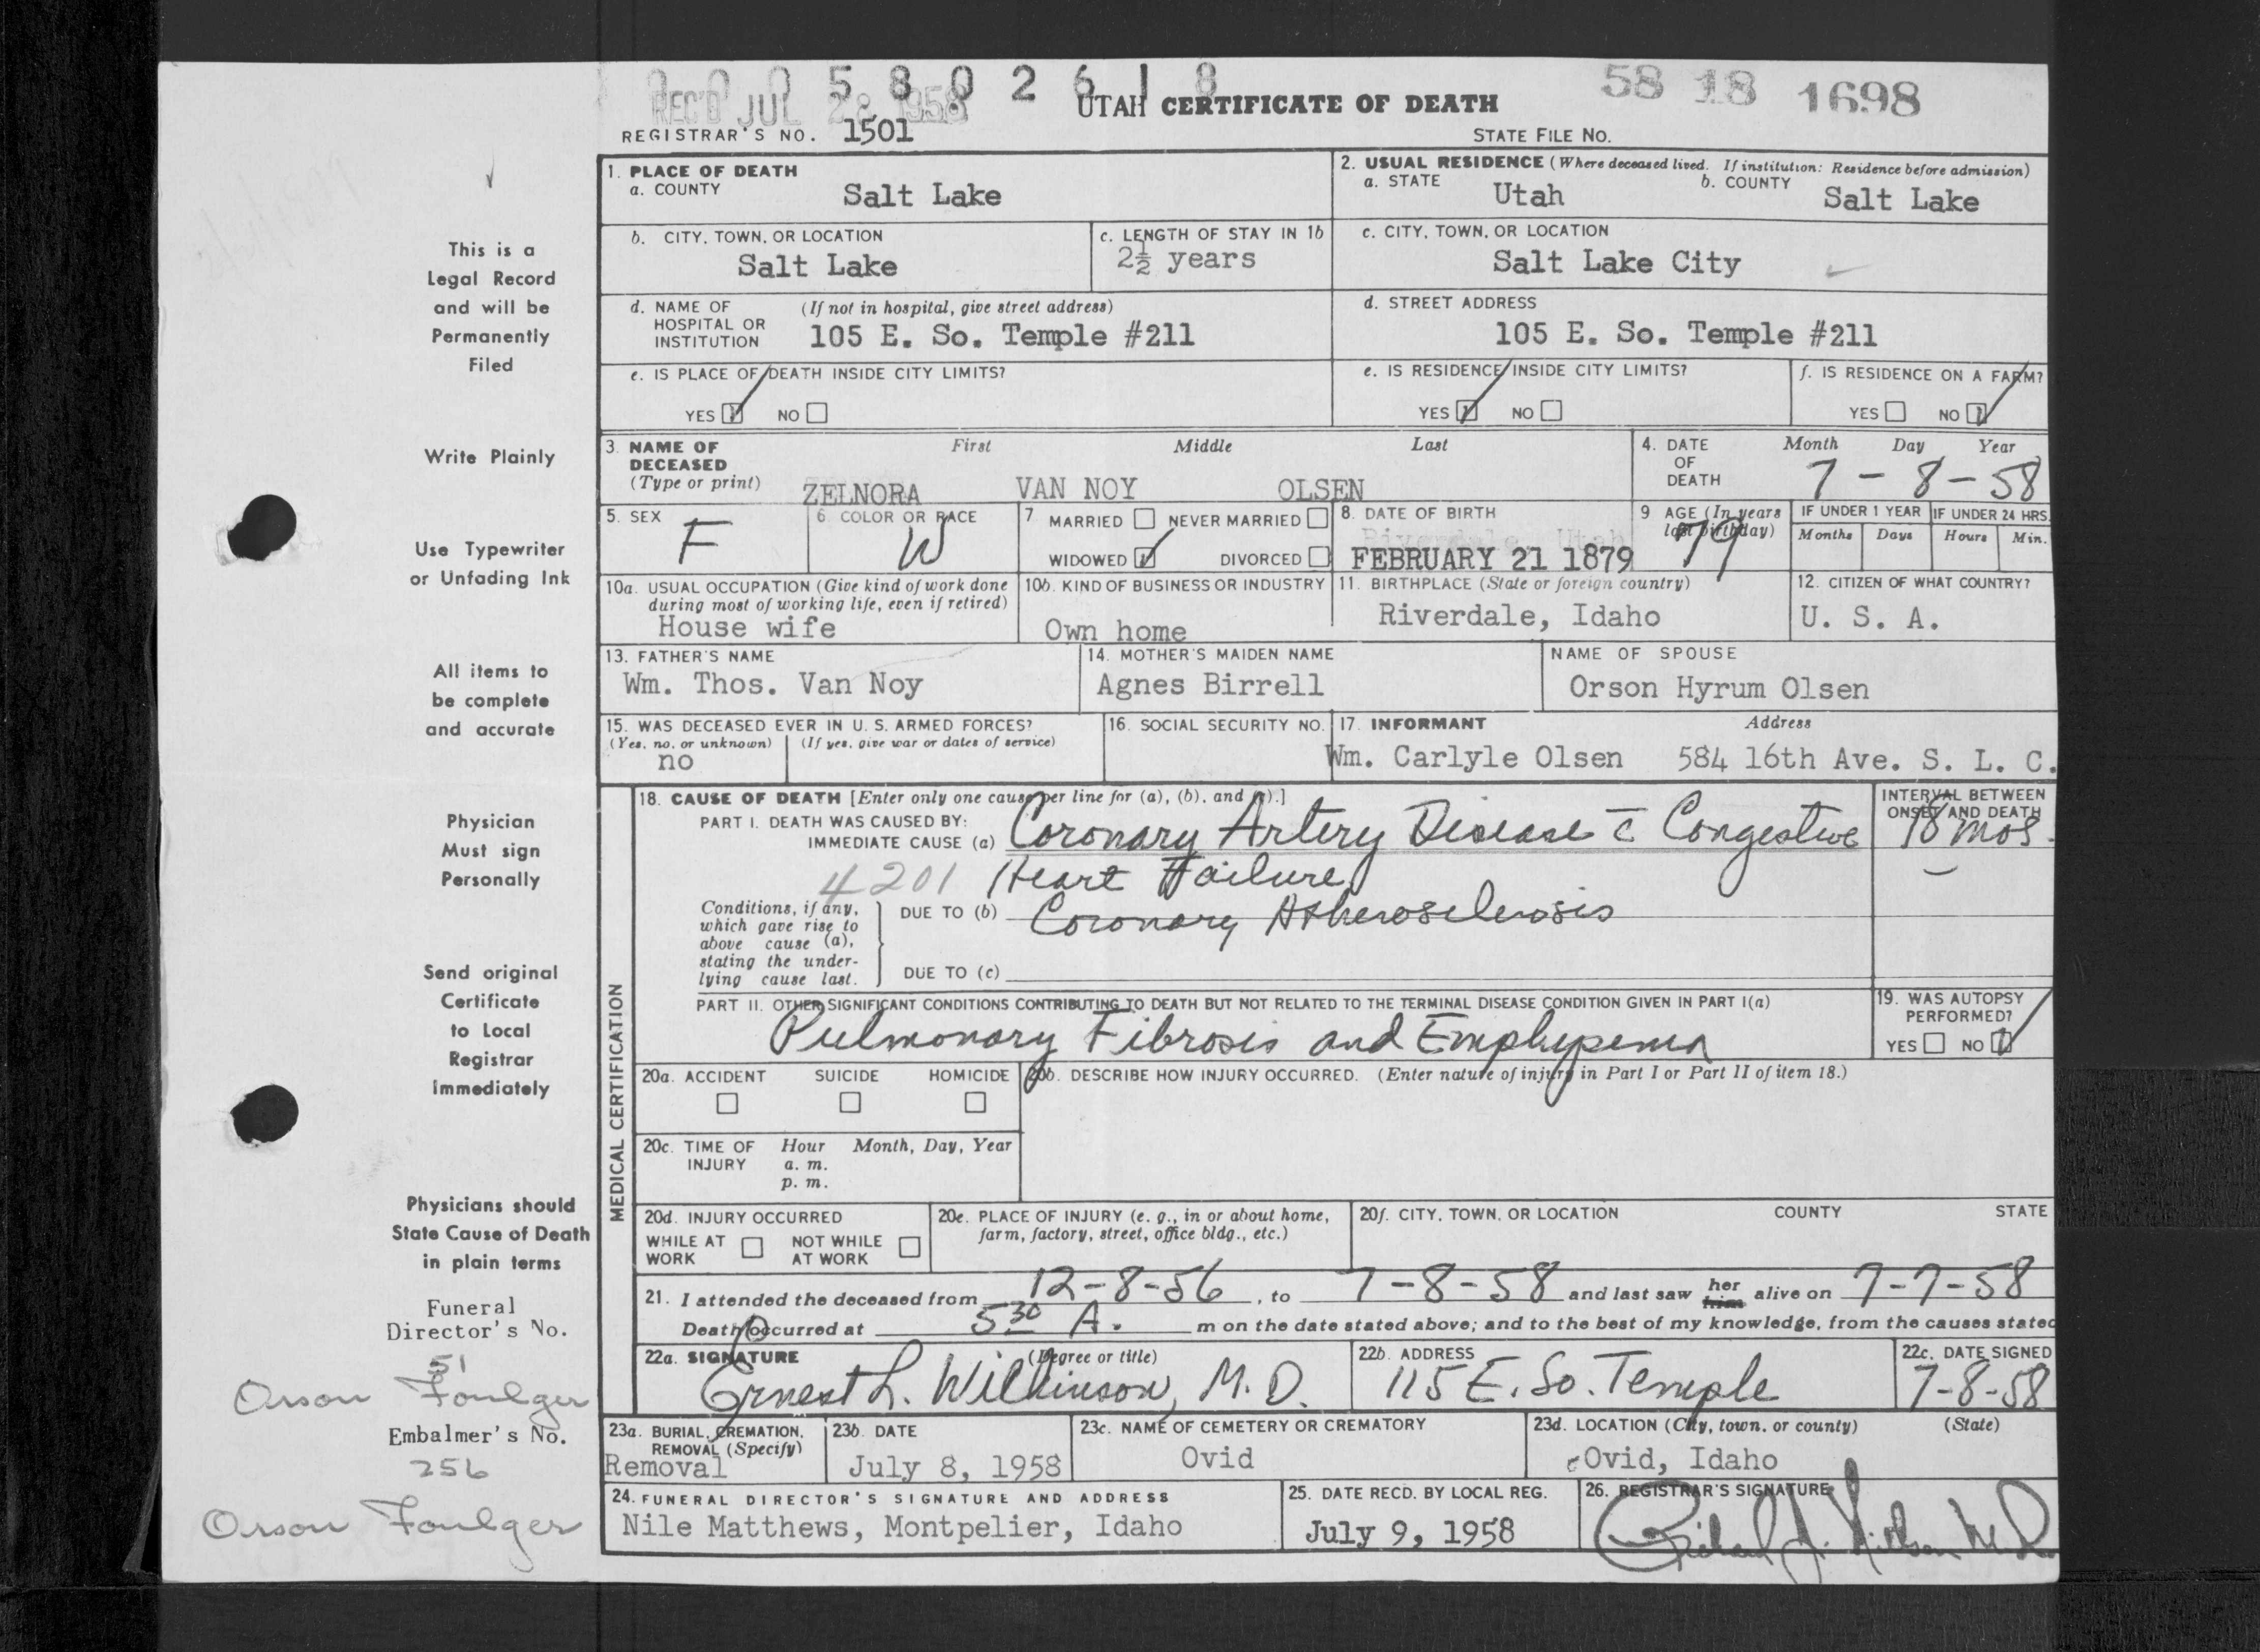 0 0 0 5 8 0 2 6 1 8
REC'D JUL 28 1958
58 18 1698
UTAH CERTIFICATE OF DEATH
REGISTRAR'S NO. 1501
STATE FILE NO.
1. PLACE OF DEATH
a. COUNTY Salt Lake
2. USUAL RESIDENCE (Where deceased lived. If institution: Residence before admission)
a. STATE Utah b. COUNTY Salt Lake
b. CITY, TOWN, OR LOCATION
Salt Lake
c. LENGTH OF STAY IN 1b
2½ years
c. CITY, TOWN, OR LOCATION
Salt Lake City
d. NAME OF HOSPITAL OR INSTITUTION (If not in hospital, give street address)
105 E. So. Temple #211
d. STREET ADDRESS
105 E. So. Temple #211
e. IS PLACE OF DEATH INSIDE CITY LIMITS?
YES NO
e. IS RESIDENCE INSIDE CITY LIMITS?
YES NO
f. IS RESIDENCE ON A FARM?
YES NO
3. NAME OF DECEASED (Type or print)
First Middle Last
ZELNORA VAN NOY OLSEN
4. DATE OF DEATH Month Day Year
7-8-58
5. SEX
F
6 COLOR OR RACE
W
7 MARRIED NEVER MARRIED
WIDOWED DIVORCED
8. DATE OF BIRTH
Riverdale, Utah
FEBRUARY 21 1879
9 AGE (In years last birthday)
79
IF UNDER 1 YEAR
Months Days
IF UNDER 24 HRS.
Hours Min.
10a. USUAL OCCUPATION (Give kind of work done
during most of working life, even if retired)
House wife
10b. KIND OF BUSINESS OR INDUSTRY
Own home
11. BIRTHPLACE (State or foreign country)
Riverdale, Idaho
12. CITIZEN OF WHAT COUNTRY?
U. S. A.
13. FATHER'S NAME
Wm. Thos. Van Noy
14. MOTHER'S MAIDEN NAME
Agnes Birrell
NAME OF SPOUSE
Orson Hyrum Olsen
15. WAS DECEASED EVER IN U. S. ARMED FORCES?
(Yes, no, or unknown) (If yes, give war or dates of service)
no
16. SOCIAL SECURITY NO.
17. INFORMANT Address
Wm. Carlyle Olsen 584 16th Ave. S. L. C.
MEDICAL CERTIFICATION
18. CAUSE OF DEATH [Enter only one cause per line for (a), (b), and (c).]
PART I. DEATH WAS CAUSED BY:
IMMEDIATE CAUSE (a) Coronary Artery Disease c̄ Congestive
4201 Heart Failure
INTERVAL BETWEEN
ONSET AND DEATH
18 mos.
Conditions, if any,
which gave rise to
above cause (a),
stating the under-
lying cause last.
DUE TO (b) Coronary Atherosclerosis
DUE TO (c)
PART II. OTHER SIGNIFICANT CONDITIONS CONTRIBUTING TO DEATH BUT NOT RELATED TO THE TERMINAL DISEASE CONDITION GIVEN IN PART I(a)
Pulmonary Fibrosis and Emphysema
19. WAS AUTOPSY
PERFORMED?
YES NO
20a. ACCIDENT SUICIDE HOMICIDE
20b. DESCRIBE HOW INJURY OCCURRED. (Enter nature of injury in Part I or Part II of item 18.)
20c. TIME OF INJURY Hour Month, Day, Year
a. m.
p. m.
20d. INJURY OCCURRED
WHILE AT WORK NOT WHILE AT WORK
20e. PLACE OF INJURY (e. g., in or about home,
farm, factory, street, office bldg., etc.)
20f. CITY, TOWN, OR LOCATION COUNTY STATE
21. I attended the deceased from 12-8-56, to 7-8-58 and last saw her him alive on 7-7-58
Death occurred at 5 30 A. m on the date stated above; and to the best of my knowledge, from the causes stated
22a. SIGNATURE (Degree or title)
Ernest L. Wilkinson, M.D.
22b. ADDRESS
115 E. So. Temple
22c. DATE SIGNED
7-8-58
23a. BURIAL, CREMATION,
REMOVAL (Specify)
Removal
23b. DATE
July 8, 1958
23c. NAME OF CEMETERY OR CREMATORY
Ovid
23d. LOCATION (City, town, or county) (State)
Ovid, Idaho
24. FUNERAL DIRECTOR'S SIGNATURE AND ADDRESS
Nile Matthews, Montpelier, Idaho
25. DATE RECD. BY LOCAL REG.
July 9, 1958
26. REGISTRAR'S SIGNATURE
This is a
Legal Record
and will be
Permanently
Filed
Write Plainly
Use Typewriter
or Unfading Ink
All items to
be complete
and accurate
Physician
Must sign
Personally
Send original
Certificate
to Local
Registrar
immediately
Physicians should
State Cause of Death
in plain terms
Funeral
Director's No.
51
Orson Foulger
Embalmer's No.
256
Orson Foulger